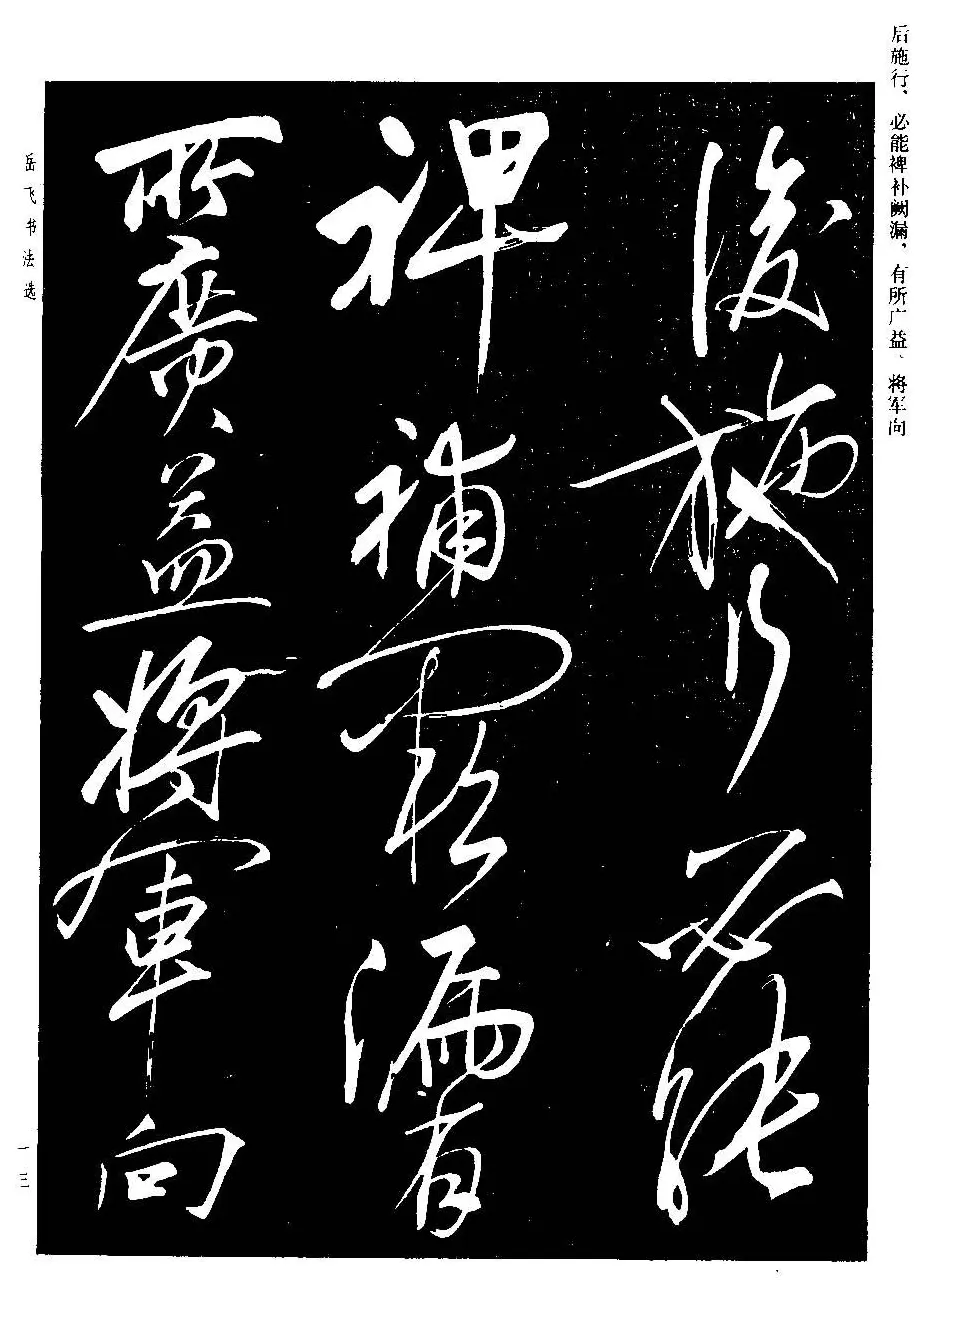 后施行、必能裨补阙漏，有所广益、将军向
後施行必能
裨補闕漏有
所廣益將軍向
岳飞书法选
一三